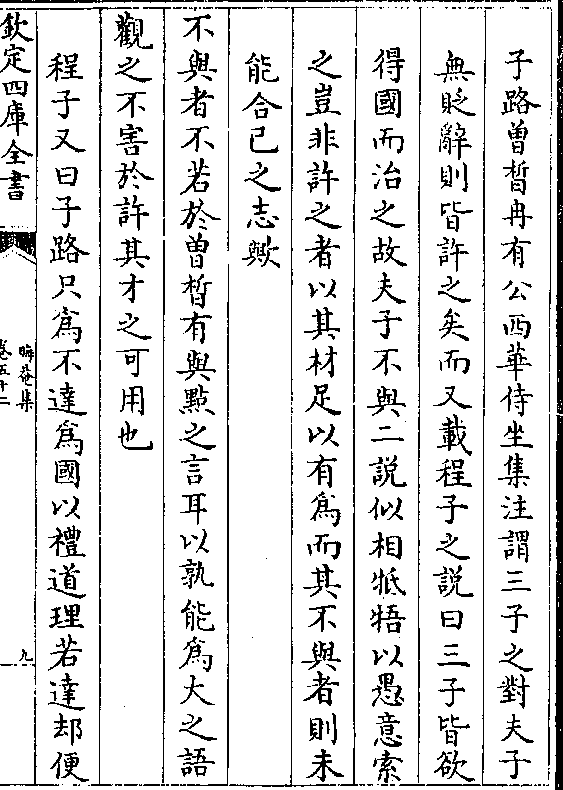 子路曾晳冉有公西華侍坐集注謂三子之對夫子
無貶辭則皆許之矣而又載程子之説曰三子皆欲
得國而治之故夫子不與二説似相牴牾以愚意索
之豈非許之者以其材足以有爲而其不與者則未
能合己之志歟
不與者不若於曾晳有與㸃之言耳以孰能爲大之語
觀之不害於許其才之可用也
程子又曰子路只爲不達爲國以禮道理若達却便
欽定四庫全書
晦菴集
卷五十二
九